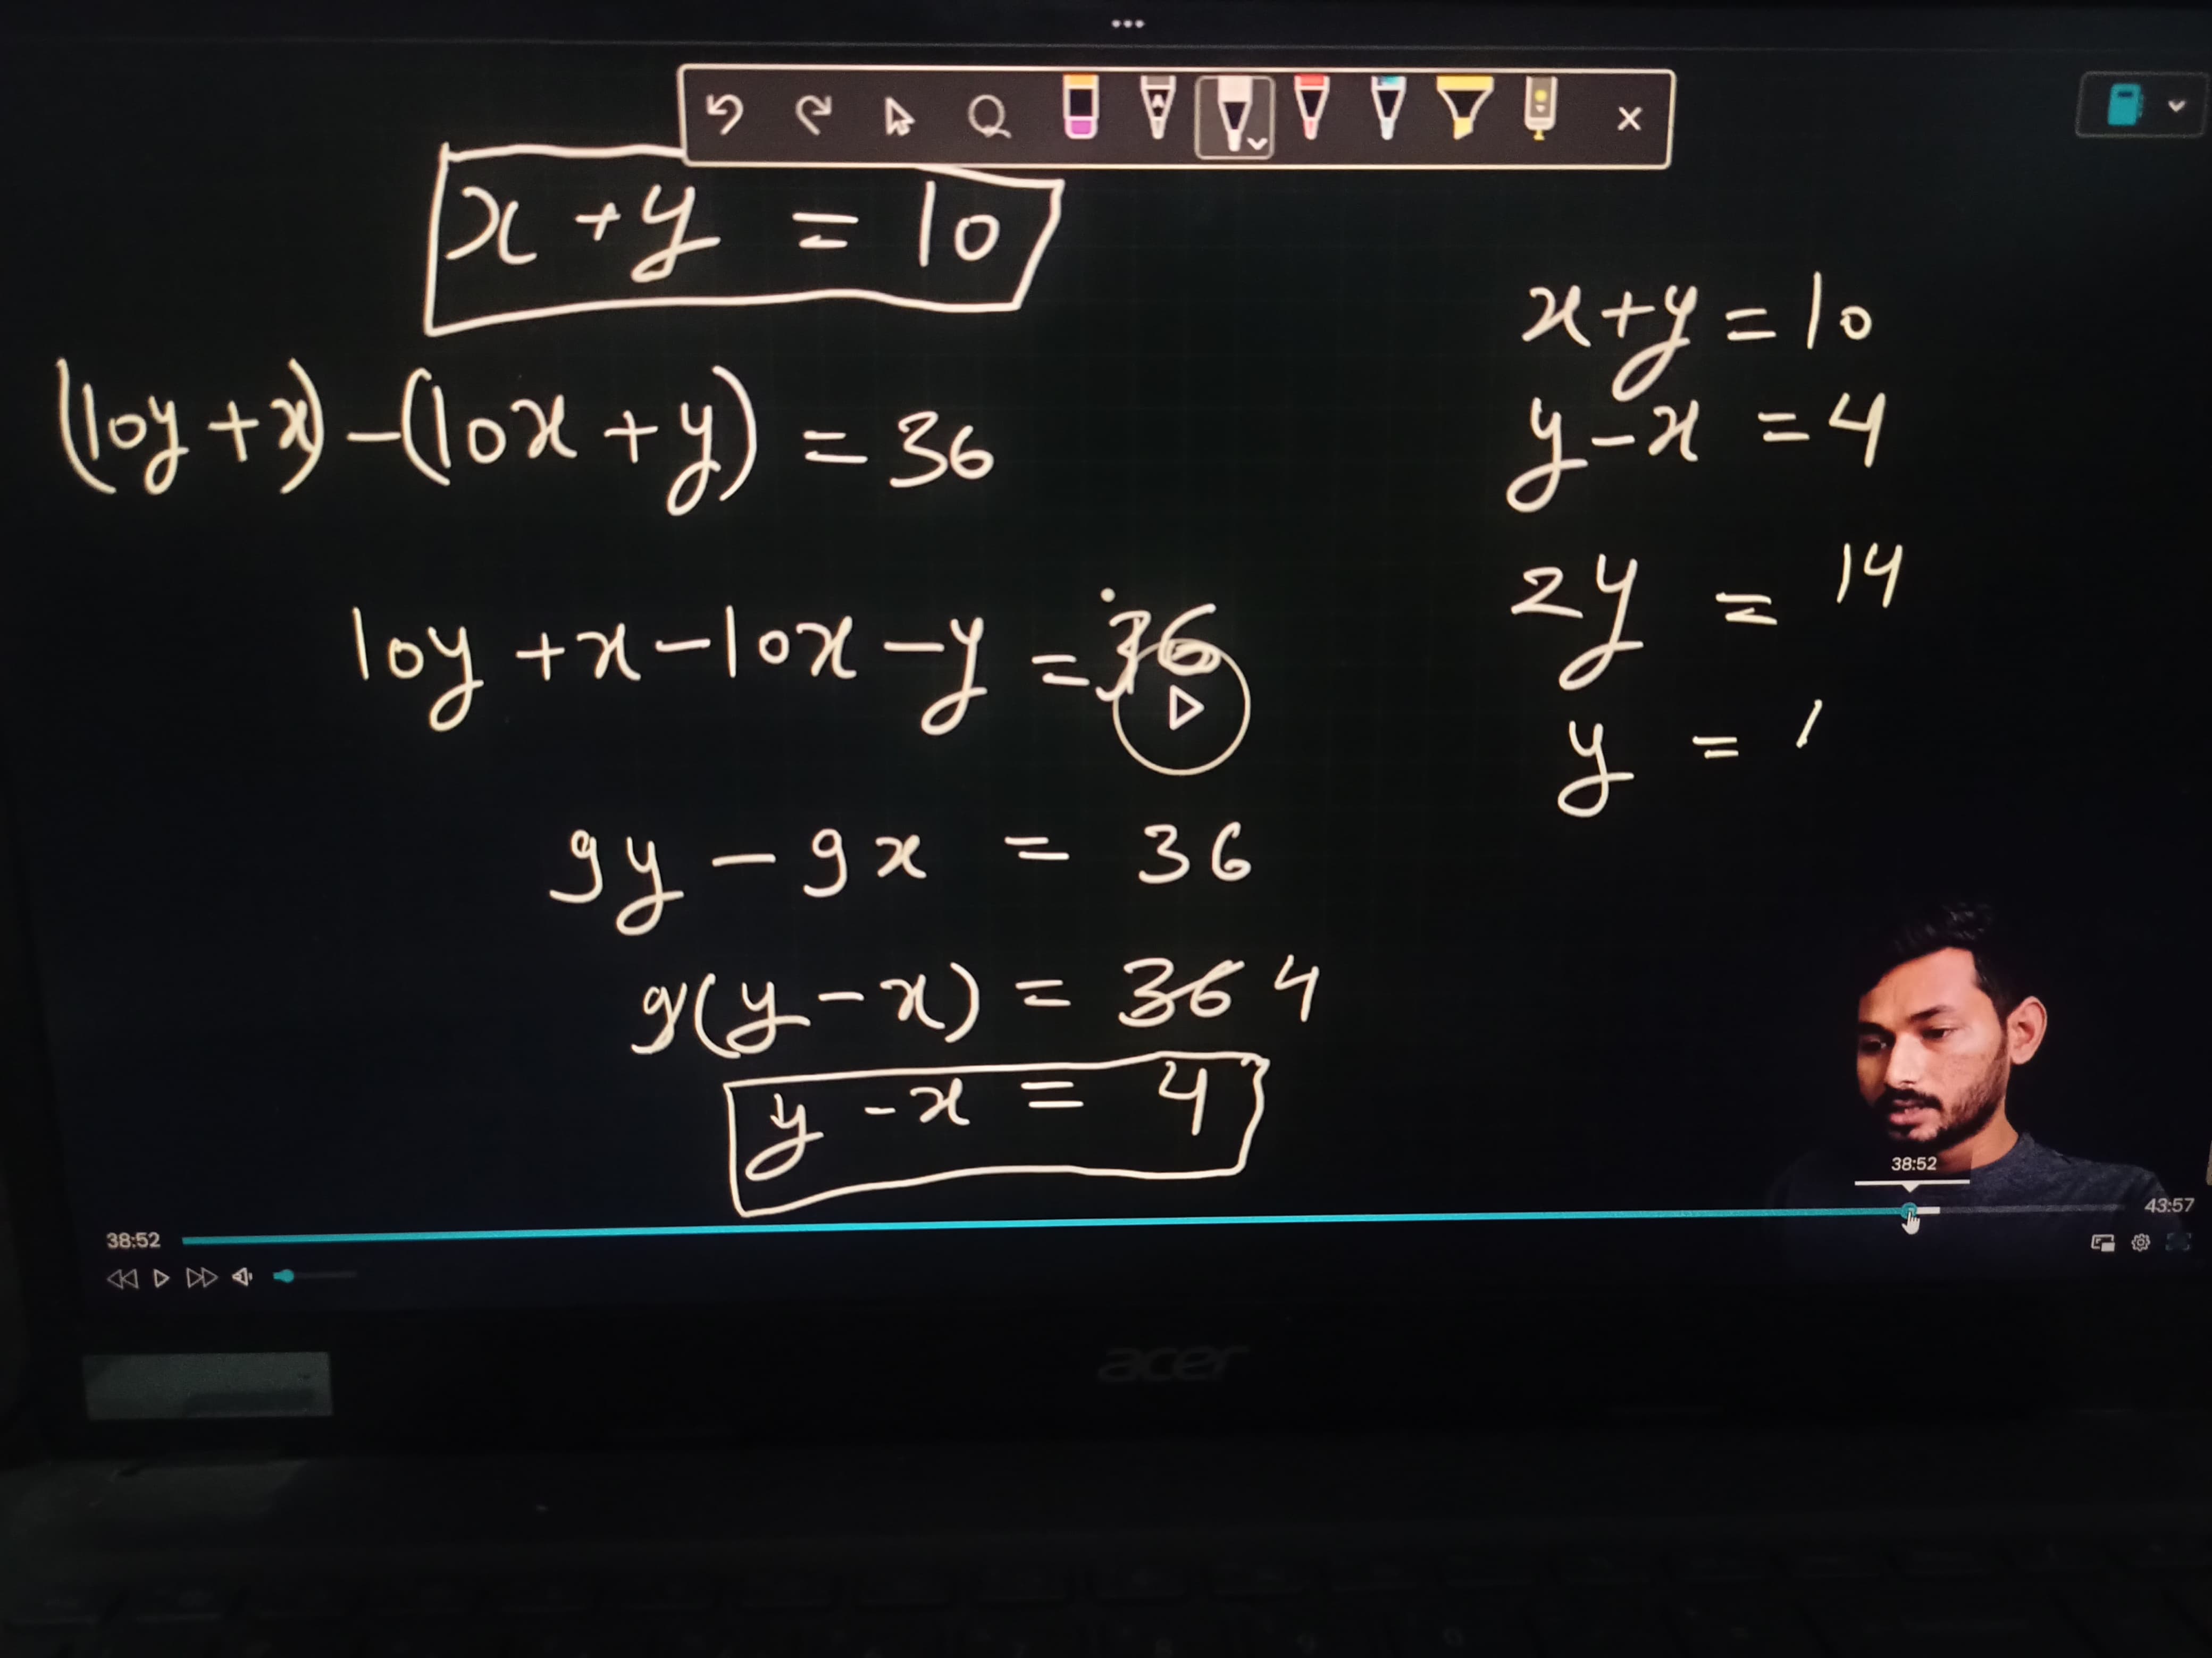 x + y = 10
(10y + x) - (10x + y) = 36
10y + x - 10x - y = 36
9y - 9x = 36
9(y - x) = 36 4
y - x = 4
x + y = 10
y - x = 4
2y = 14
y =
38:52
38:52
43:57
acer